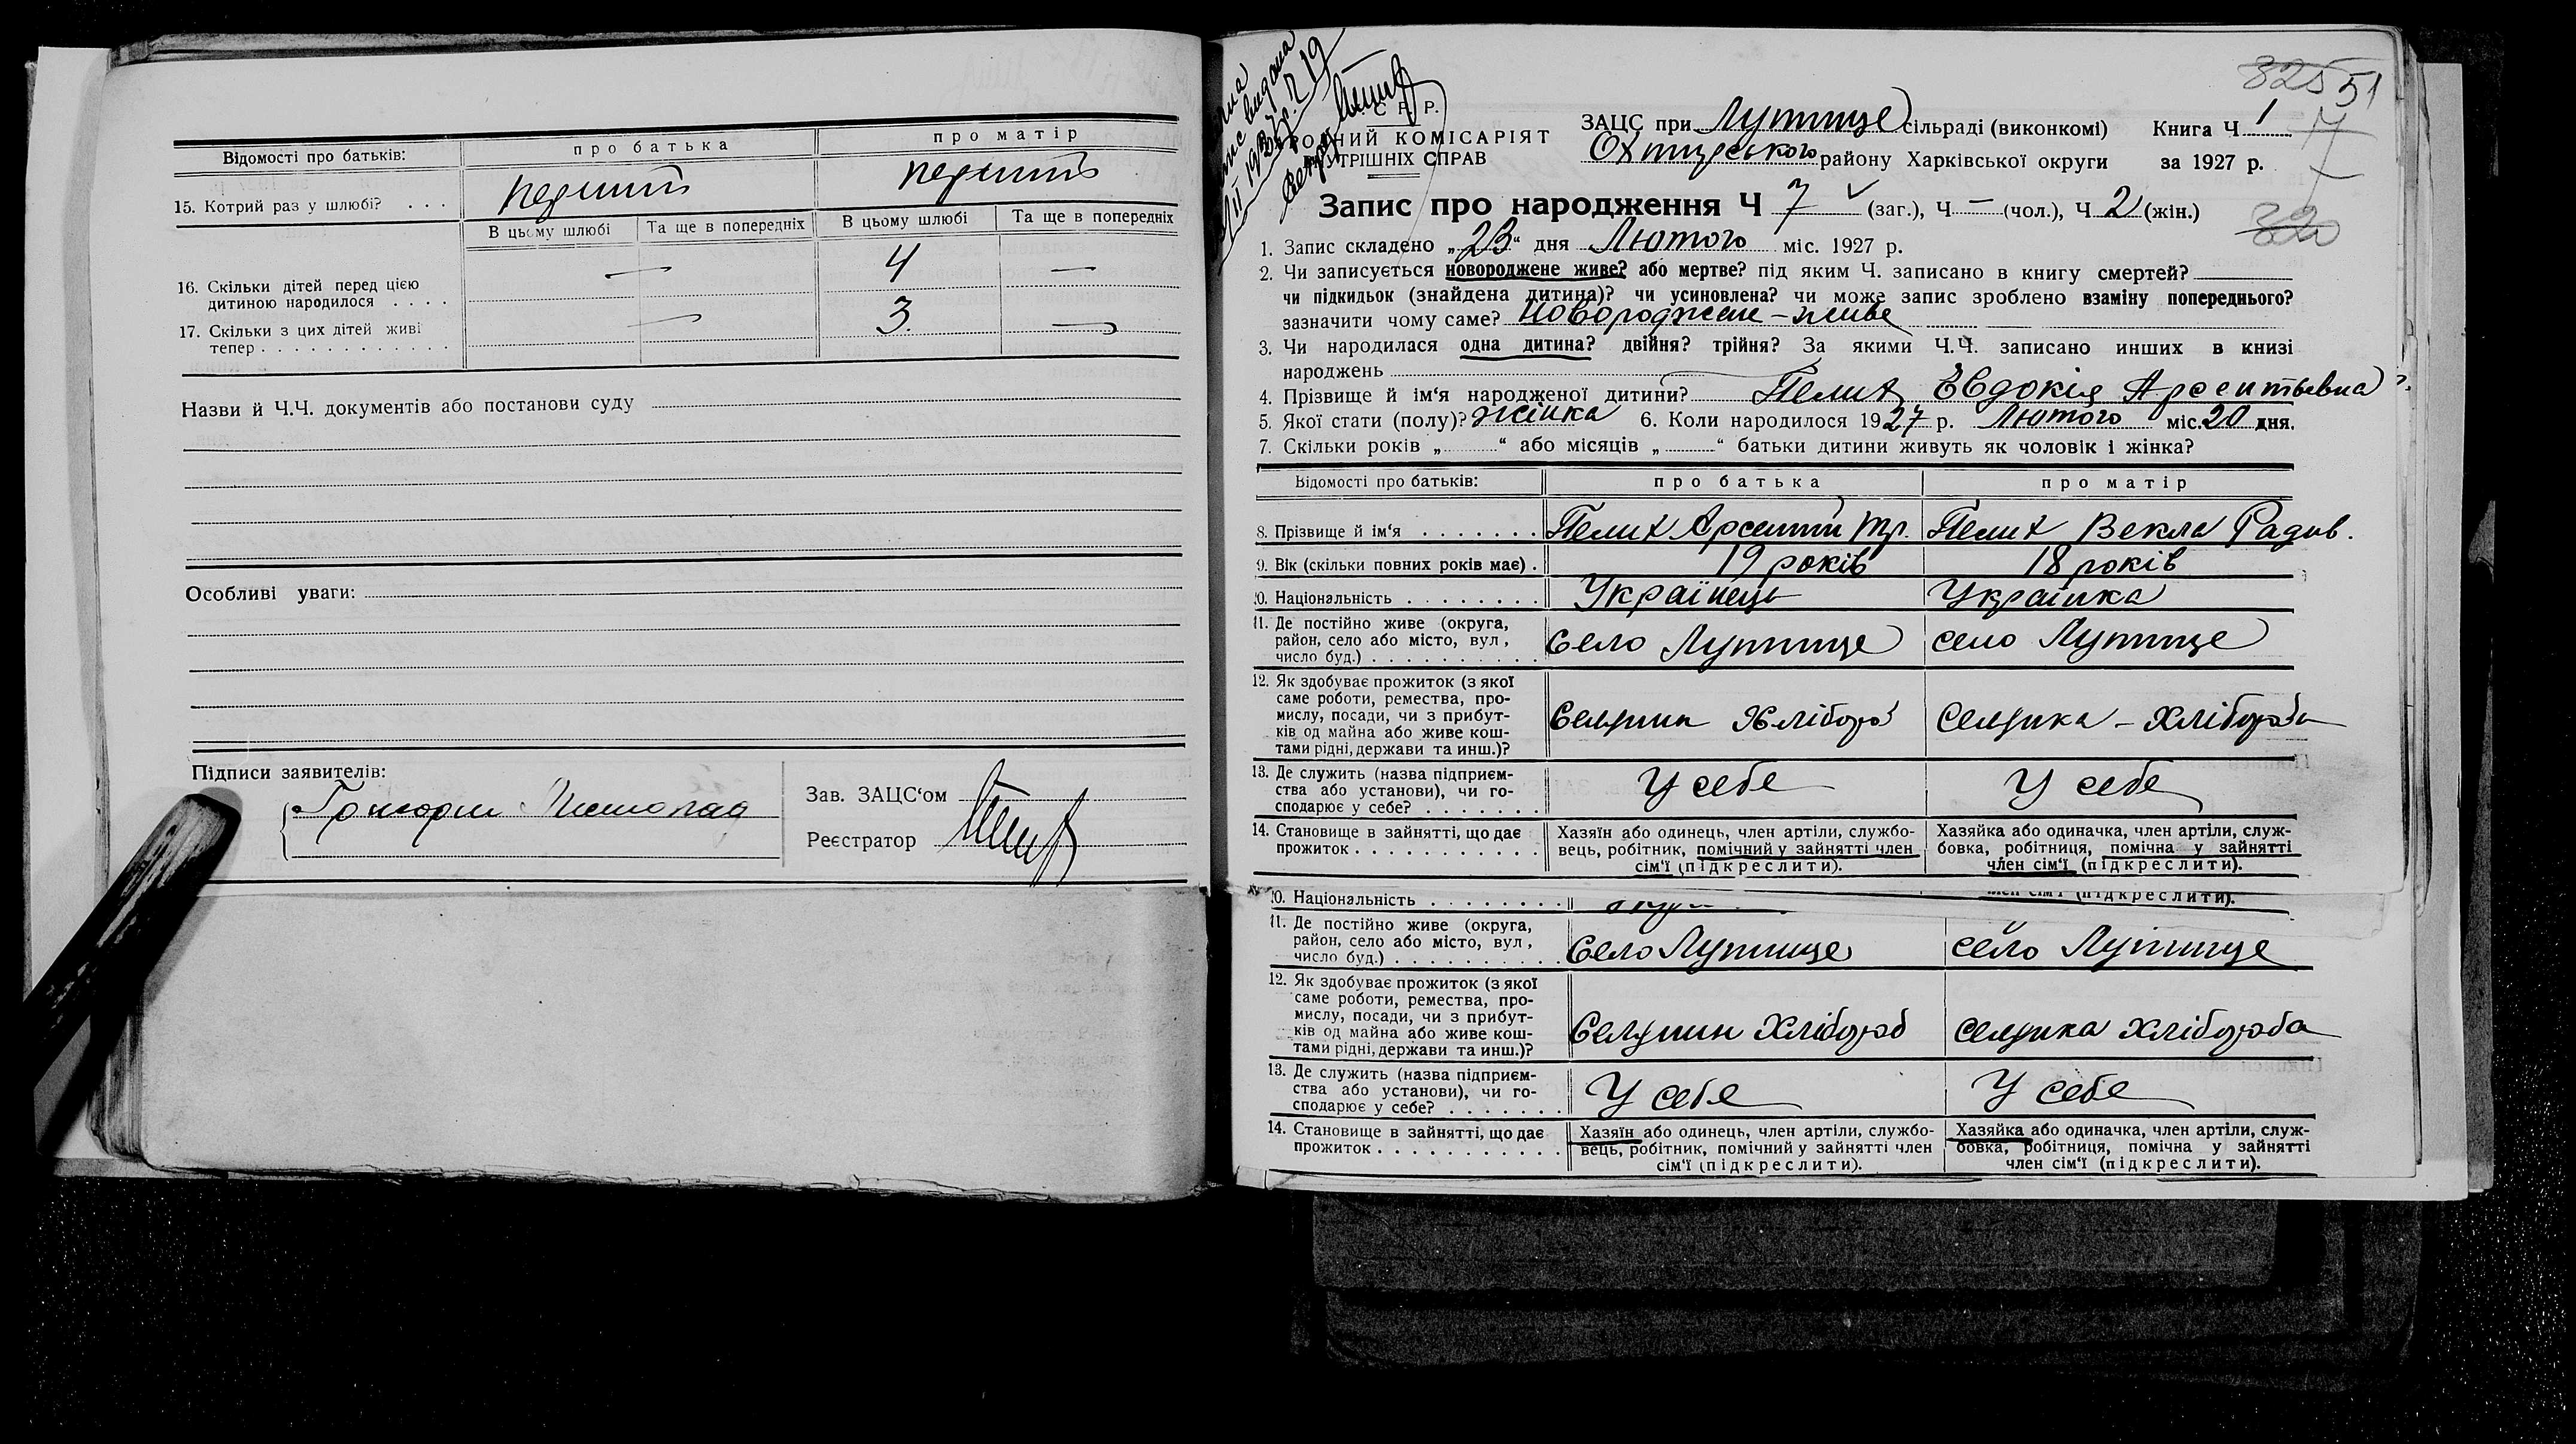 Відомості про батьків:
про батька
про матір
15. Котрий раз у шлюбі? . . .
перший
перший
В цьому шлюбі
Та ще в попередніх
В цьому шлюбі
Та ще в попередніх
16. Скільки дітей перед цією
дитиною народилося . . . .
—
4
—
17. Скільки з цих дітей живі
тепер . . . . . . . . . . . .
—
3
—
Назви й Ч.Ч. документів або постанови суду
Особливі уваги:
Підписи заявителів:
Зав. ЗАЦС'ом
Реєстратор
325 51
С Р Р.
РОДНИЙ КОМІСАРІЯТ
УТРІШНІХ СПРАВ
ЗАЦС при Лутище сільраді (виконкомі) Книга Ч 1
Охтирського району Харківської округи за 1927 р.
Запис про народження Ч 7 (заг.), Ч — (чол.), Ч 2 (жін.)
320
1. Запис складено „23“ дня Лютого міс. 1927 р.
2. Чи записується новороджене живе? або мертве? під яким Ч. записано в книгу смертей?
чи підкидьок (знайдена дитина)? чи усиновлена? чи може запис зроблено взаміну попереднього?
зазначити чому саме? Новороджене – живе
3. Чи народилася одна дитина? двійня? трійня? За якими Ч.Ч. записано инших в книзі
народжень
4. Прізвище й ім'я народженої дитини? Пелих Євдокія Арсентьевна
5. Якої стати (полу)? жінка 6. Коли народилося 1927 р. Лютого міс. 20 дня.
7. Скільки років „ “ або місяців „ “ батьки дитини живуть як чоловік і жінка?
Відомості про батьків:
про батька
про матір
8. Прізвище й ім'я . . . . . . .
Пелих Арсентий Тр.
Пелих Векла Радив.
9. Вік (скільки повних років має) .
19 років
18 років
10. Національність . . . . . . . .
Українець
Українка
11. Де постійно живе (округа,
район, село або місто, вул,
число буд.) . . . . . . . . . .
село Лутище
село Лутище
12. Як здобуває прожиток (з якої
саме роботи, ремества, про-
мислу, посади, чи з прибут-
ків од майна або живе кош-
тами рідні, держави та инш.)?
Селянин Хлібороб
Селянка – Хлібороба
13. Де служить (назва підприєм-
ства або установи), чи го-
сподарює у себе? . . . . . . .
У себе
У себе
14. Становище в зайнятті, що дає
прожиток . . . . . . . . . . . .
Хазяїн або одинець, член артіли, службо-
вець, робітник, помічний у зайнятті член
сім'ї (підкреслити).
Хазяйка або одиначка, член артіли, служ-
бовка, робітниця, помічна у зайнятті
член сім'ї (підкреслити).
член сім'ї (підкреслити).
10. Національність . . . . . . . .
11. Де постійно живе (округа,
район, село або місто, вул,
число буд.) . . . . . . . . . .
село Лутище
село Лутище
12. Як здобуває прожиток (з якої
саме роботи, ремества, про-
мислу, посади, чи з прибут-
ків од майна або живе кош-
тами рідні, держави та инш.)?
Селянин Хлібороб
селянка хлібороба
13. Де служить (назва підприєм-
ства або установи), чи го-
сподарює у себе? . . . . . . .
У себе
У себе
14. Становище в зайнятті, що дає
прожиток . . . . . . . . . . . .
Хазяїн або одинець, член артіли, службо-
вець, робітник, помічний у зайнятті член
сім'ї (підкреслити).
Хазяйка або одиначка, член артіли, служ-
бовка, робітниця, помічна у зайнятті
член сім'ї (підкреслити).